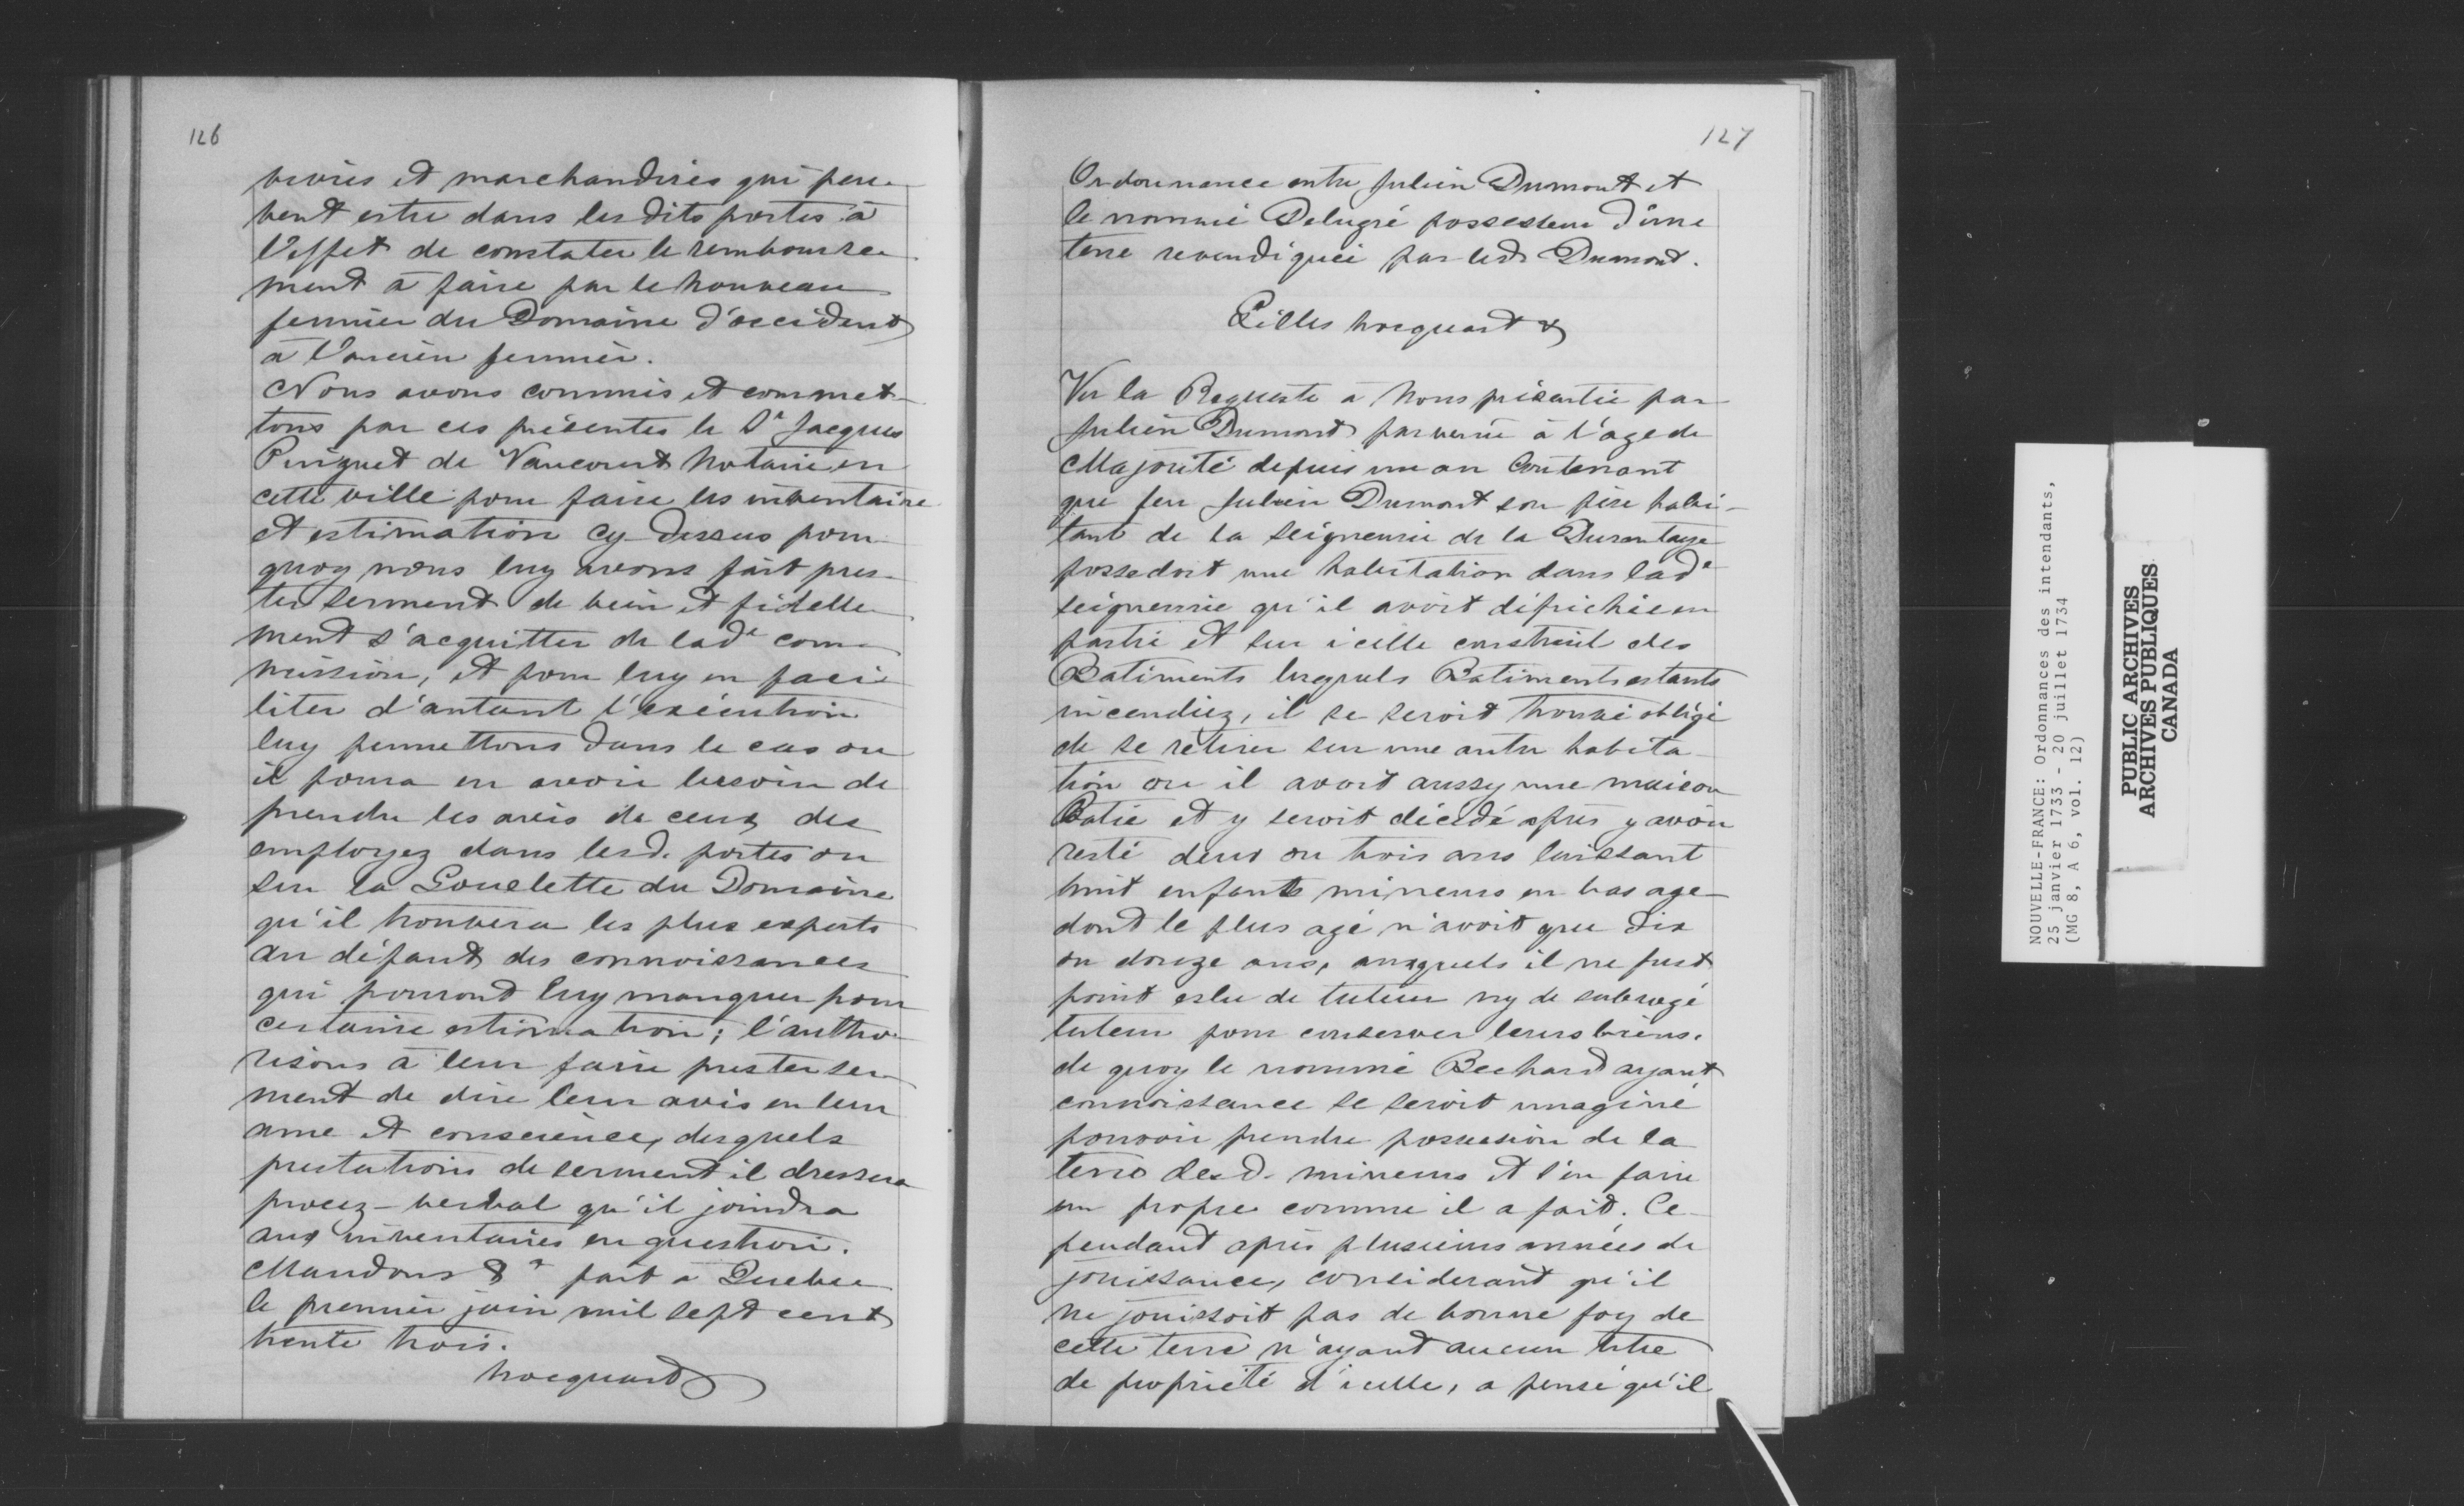 126
vivres et marchandises qui peu-
vent estre dans les dits postes à
l'effet de constater le rembourse-
ment à faire par le nouveau
fermier du Domaine d'occident
à l'ancien fermier.
Nous avons commis et commet-
tons par ces présentes le Sr Jacques
Pinguet de Vaucourt Notaire en
cette ville pour faire les inventaire
et estimation cy dessus pour-
quoy nous luy avons fait pres-
ter serment de bien et fidelle-
ment s'acquitter de lade com-
mission, et pour luy en faci-
liter d'autant l'exécution
luy permettons dans le cas ou
il poura en avoir besoin de
prendre les avis de ceux des
employez dans lesd. postes ou
sur la Gouelette du Domaine
qu'il trouvera les plus experts
au défaut des connoissances
qui pouront luy manquer pour
certaine estimation; l'autho-
risons à leur faire prester ser-
ment de dire leur avis en leur
ame et conscience, desquels
prestations de serment il dressera
procez-verbal qu'il joindra
aux inventaires en question.
Mandons &a fait à Quebec
le premier juin mil sept cent
trente trois.
hocquart
127
Ordonnance entre Julien Dumont et
le nommé Delugré possesseur d'une
terre revendiquée par led. Dumont.
Gilles hocquart &
Vu la Requeste à Nous présentée par
Julien Dumont parvenu à l'age de
Majorité depuis un an Contenant
que feu Julien Dumont son père habi-
tant de la seigneurie de la Durantaye
possedoit une habitation dans lade
seigneurie qu'il avoit défrichée en
partie et sur icelle construit des
Batiments lesquels Batiments estants
incendiez, il se seroit trouvé obligé
de se retirer sur une autre habita-
tion ou il avoit aussy une maison
Batie et y seroit décédé après y avoir
resté deux ou trois ans laissant
huit enfants mineurs en bas age
dont le plus agé n'avoit que dix
ou douze ans, auxquels il ne fust
point eslu de tuteur ny de subrogé
tuteur pour conserver leurs biens.
de quoy le nommé Bechard ayant
connoissance se seroit imaginé
pouvoir prendre possession de la
terre desd. mineurs et s'en faire
un propre comme il a fait. Ce-
pendant après plusieurs années de
jouissance, considerant qu'il
ne jouissoit pas de bonne foy de
cette terre n'ayant aucun titre
de propriété d'icelle, a pensé qu'il
NOUVELLE-FRANCE: Ordonnances des intendants,
25 janvier 1733 - 20 juillet 1734
(MG 8, A 6, vol. 12)
PUBLIC ARCHIVES
ARCHIVES PUBLIQUES
CANADA